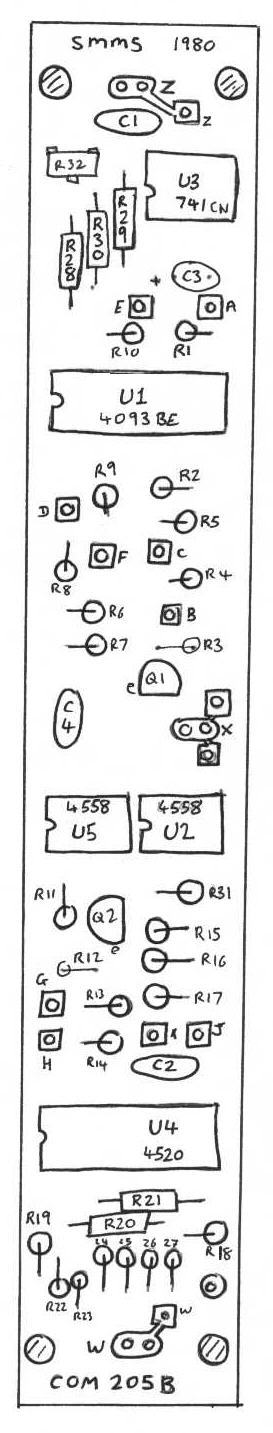 SMMS 1980
Z
C1
Z
R32
U3
741CN
R29
R30
R28
+ C3
E A
R10 R1
U1
4093BE
R9 R2
D R5
F C
R8 R4
R6 B
R7 R3
e Q1
C4
X
4558 4558
U5 U2
R11 R31
Q2 R15
e
R12 R16
G R13 R17
J
H R14 C2
U4
4520
R21
R19 R20
24 25 26 27 R18
R22 R23
W
W
COM 205B